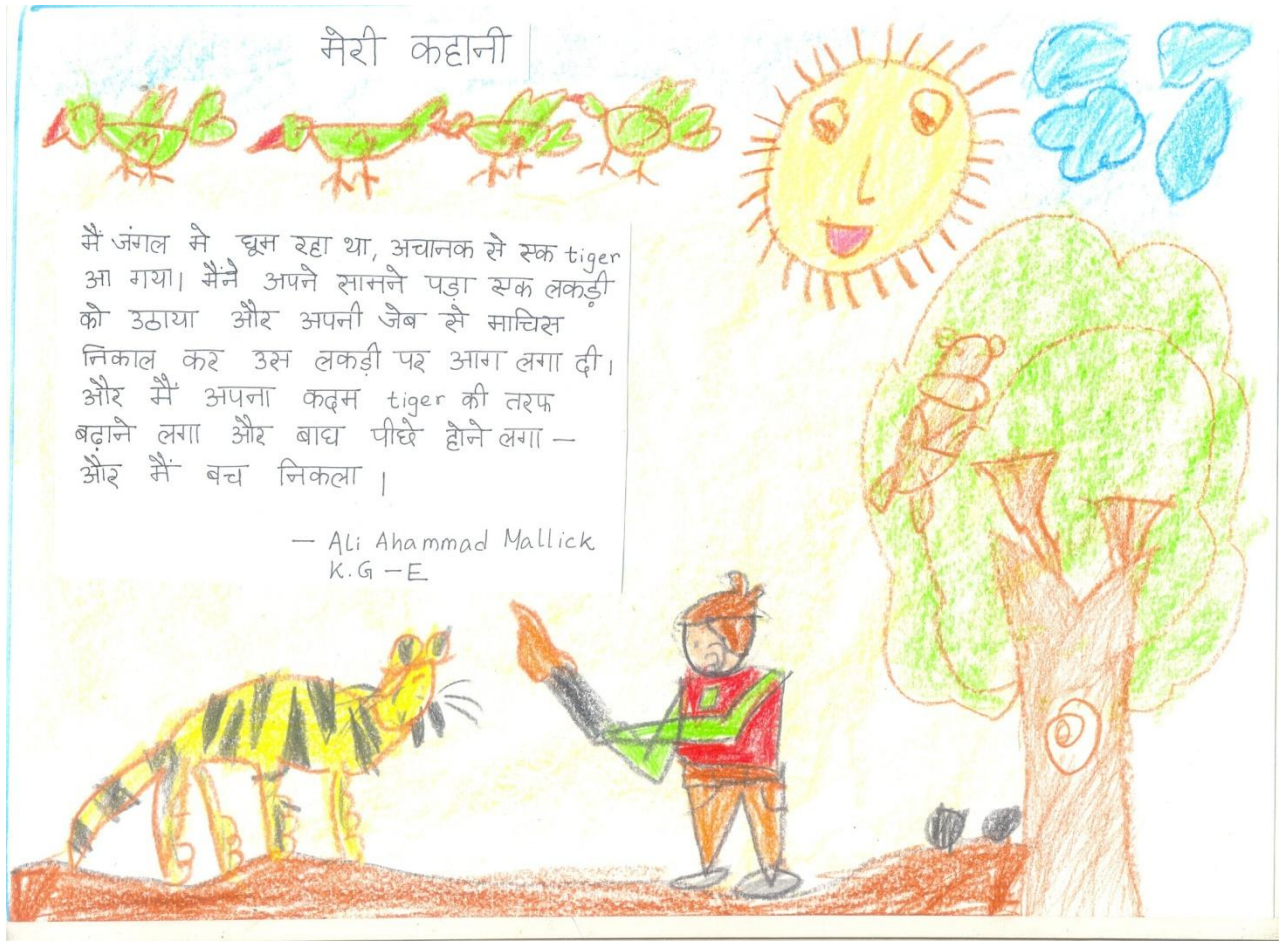 मेरी कहानी
मैं जंगल मे घूम रहा था, अचानक से एक tiger
आ गया। मैंने अपने सामने पड़ा एक लकड़ी
को उठाया और अपनी जेब से माचिस
निकाल कर उस लकड़ी पर आग लगा दी।
और मैं अपना कदम tiger की तरफ
बढ़ाने लगा और बाघ पीछे होने लगा –
और मैं बच निकला ।
– Ali Ahammad Mallick
K.G – E